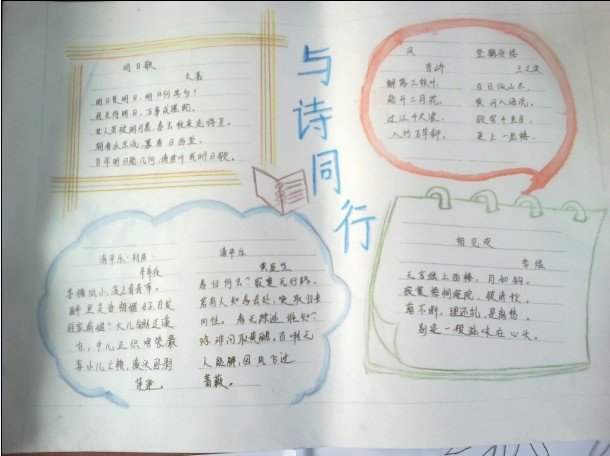 与诗同行
明日歌
文嘉
明日复明日，明日何其多！
我生待明日，万事成蹉跎。
世人若被明日累，春去秋来老将至。
朝看水东流，暮看日西坠。
百年明日能几何，请君听我明日歌。
风
李峤
解落三秋叶，
能开二月花。
过江千尺浪，
入竹万竿斜。
登鹳雀楼
王之涣
白日依山尽，
黄河入海流。
欲穷千里目，
更上一层楼。
清平乐·村居
辛弃疾
茅檐低小，溪上青青草。
醉里吴音相媚好，白发
谁家翁媪？大儿锄豆溪
东，中儿正织鸡笼。最
喜小儿亡赖，溪头卧剥
莲蓬。
清平乐
黄庭坚
春归何去？寂寞无行路。
若有人知春去处，唤取归来
同住。春无踪迹谁知？
除非问取黄鹂。百啭无
人能解，因风飞过
蔷薇。
相见欢
李煜
无言独上西楼，月如钩。
寂寞梧桐深院，锁清秋。
剪不断，理还乱，是离愁。
别是一般滋味在心头。